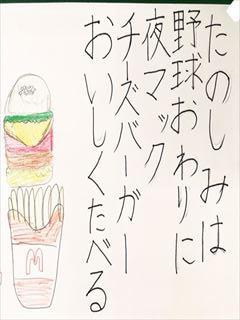 たのしみは
野球おわりに
夜マック
チーズバーガー
おいしくたべる
M